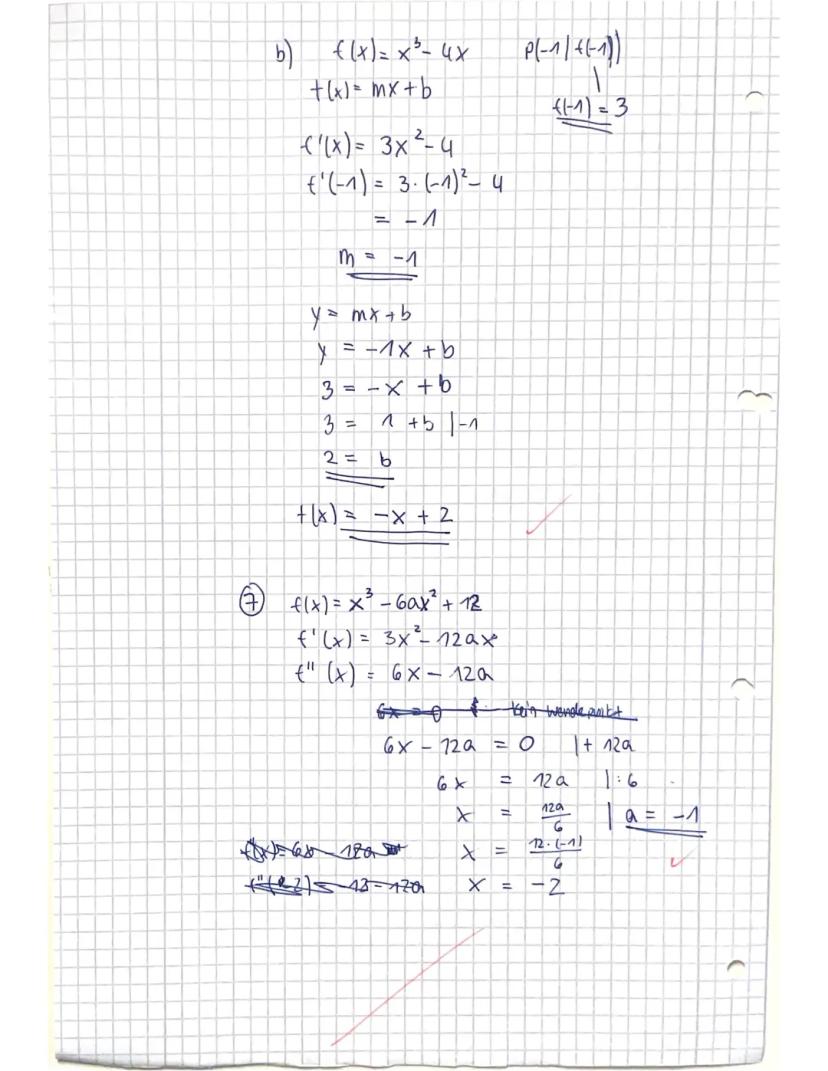 b) f(x) = x³ - 4x P(-1 | f(-1))
t(x) = mx + b
f(-1) = 3
f'(x) = 3x² - 4
f'(-1) = 3 · (-1)² - 4
= -1
m = -1
y = mx + b
y = -1x + b
3 = -x + b
3 = 1 + b | -1
2 = b
t(x) = -x + 2
⑦ f(x) = x³ - 6ax² + 12
f'(x) = 3x² - 12ax
f"(x) = 6x - 12a
6x = 0 kein wendepunkt
6x - 12a = 0 | + 12a
6x = 12a | : 6
x = 12a/6 | a = -1
x = 12·(-1)/6
x = -2